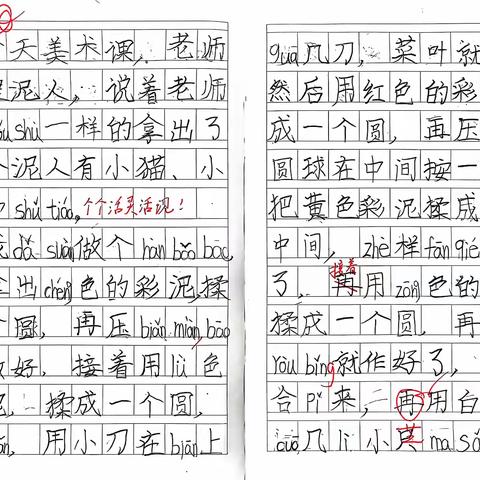 天美术课，老师
泥人，说着老师
shù一样的拿出了
泥人有小猫、小
shǔ tiáo。个个活灵活现！
dǎ suàn做个hàn bǎo bāo，
出chéng色的彩泥揉
圆，再压biǎn，miàn bāo
好，接着用lǜ色
揉成一个圆，
用小刀在biān上
guā几刀，菜叶就
然后用红色的彩
成一个圆，再压
圆球在中间按一
把黄色彩泥揉成
中间，zhè样fān qié
了，接着再用zōng色的
揉成一个圆，再
ròu bǐng就作好了，
合pǐ来，再用白
几lì小 芝ma sǎ